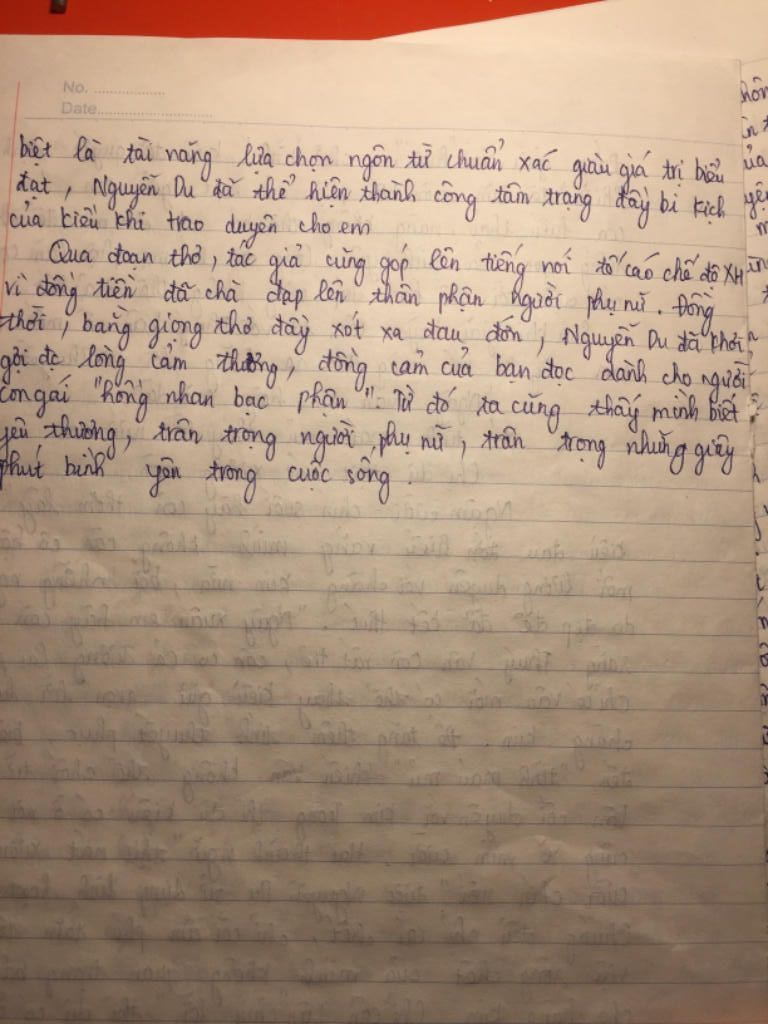 No. ..................
Date..............................
biệt là tài năng lựa chọn ngôn từ chuẩn xác giàu giá trị biểu
đạt, Nguyễn Du đã thể hiện thành công tâm trạng đầy bi kịch
của kiều khi trao duyên cho em
Qua đoạn thơ, tác giả cũng góp lên tiếng nói tố cáo chế độ XH
vì đồng tiền đã chà đạp lên thân phận người phụ nữ. Đồng
thời, bằng giọng thơ đầy xót xa đau đớn, Nguyễn Du đã khơi
gợi đc lòng cảm thương, đồng cảm của bạn đọc dành cho người
con gái "hồng nhan bạc phận". Từ đó ta cũng thấy mình biết
yêu thương, trân trọng người phụ nữ, trân trọng những giây
phút bình yên trong cuộc sống